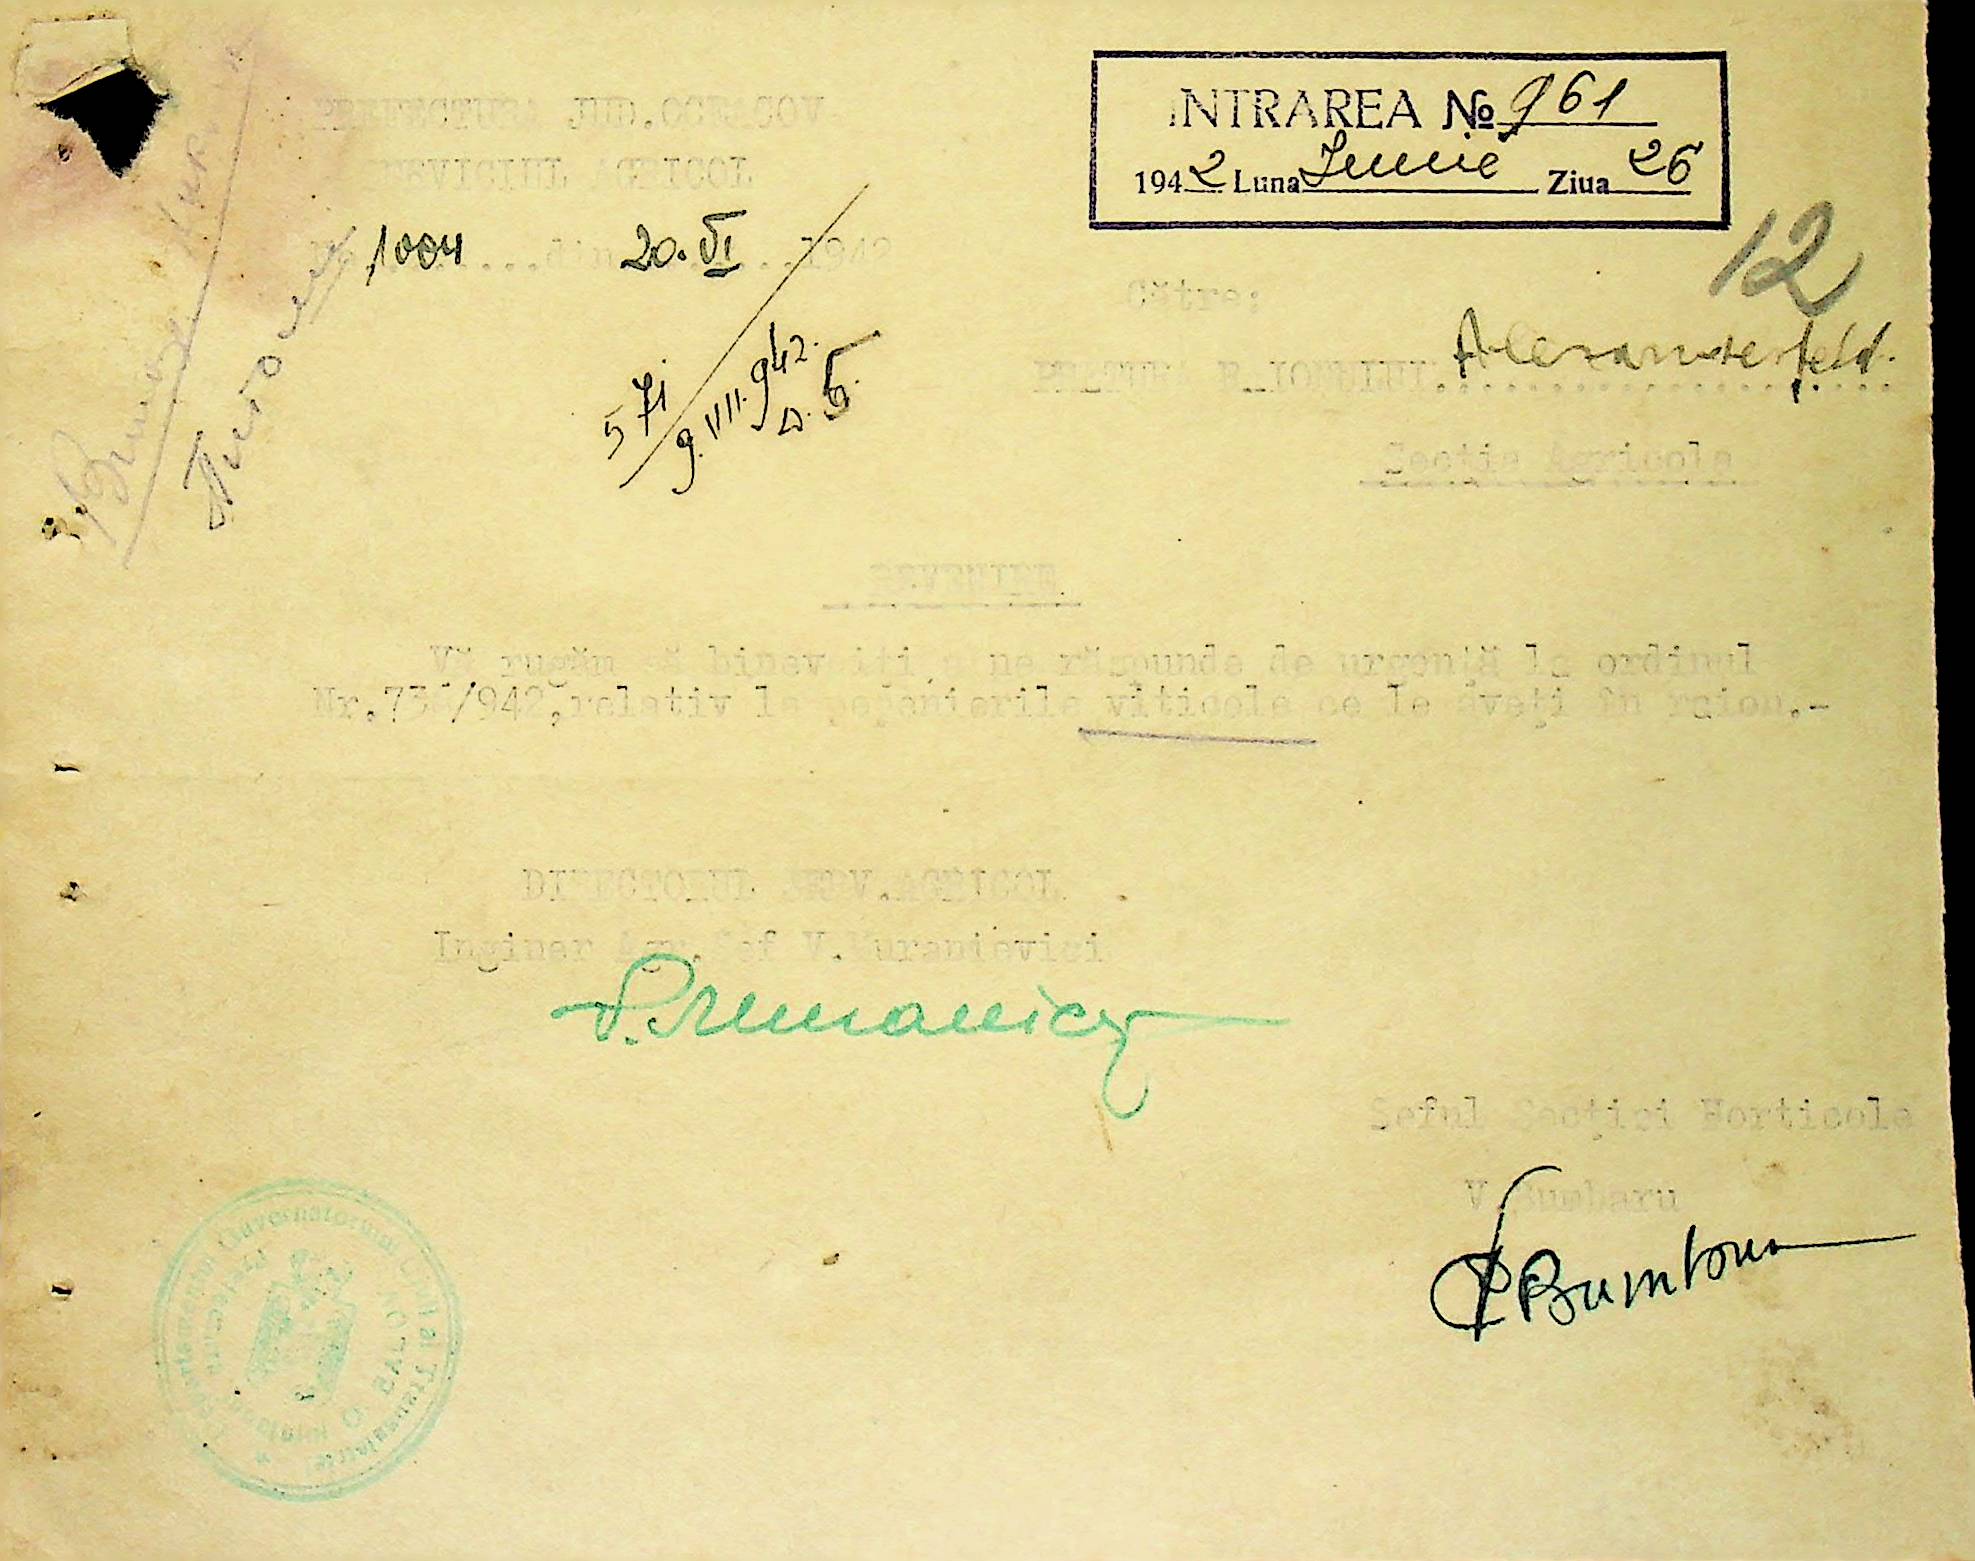 INTRAREA № 961
1942 Luna Iunie Ziua 26
12
PREFECTURA JUD. OCEACOV
SERVICIUL AGRICOL
No. 1004 din 20.VI 1942
571
9.VIII.942.
Către:
PRETURA RAIONULUI Alexanderfeld.
Secţia Agricola
REVENIRE
Vă rugăm să binevoiţi a ne răspunde de urgenţă la ordinul
Nr.738/942,relativ la pepenierile viticole ce le aveţi în raion.-
DIRECTORUL SERV.AGRICOL
Inginer Agr. Şef V.
Şeful Secţiei Horticole
V. Bumbaru
Bumbaru
Guvernatorul Civil al Transnistriei
Prefectura
Judetului